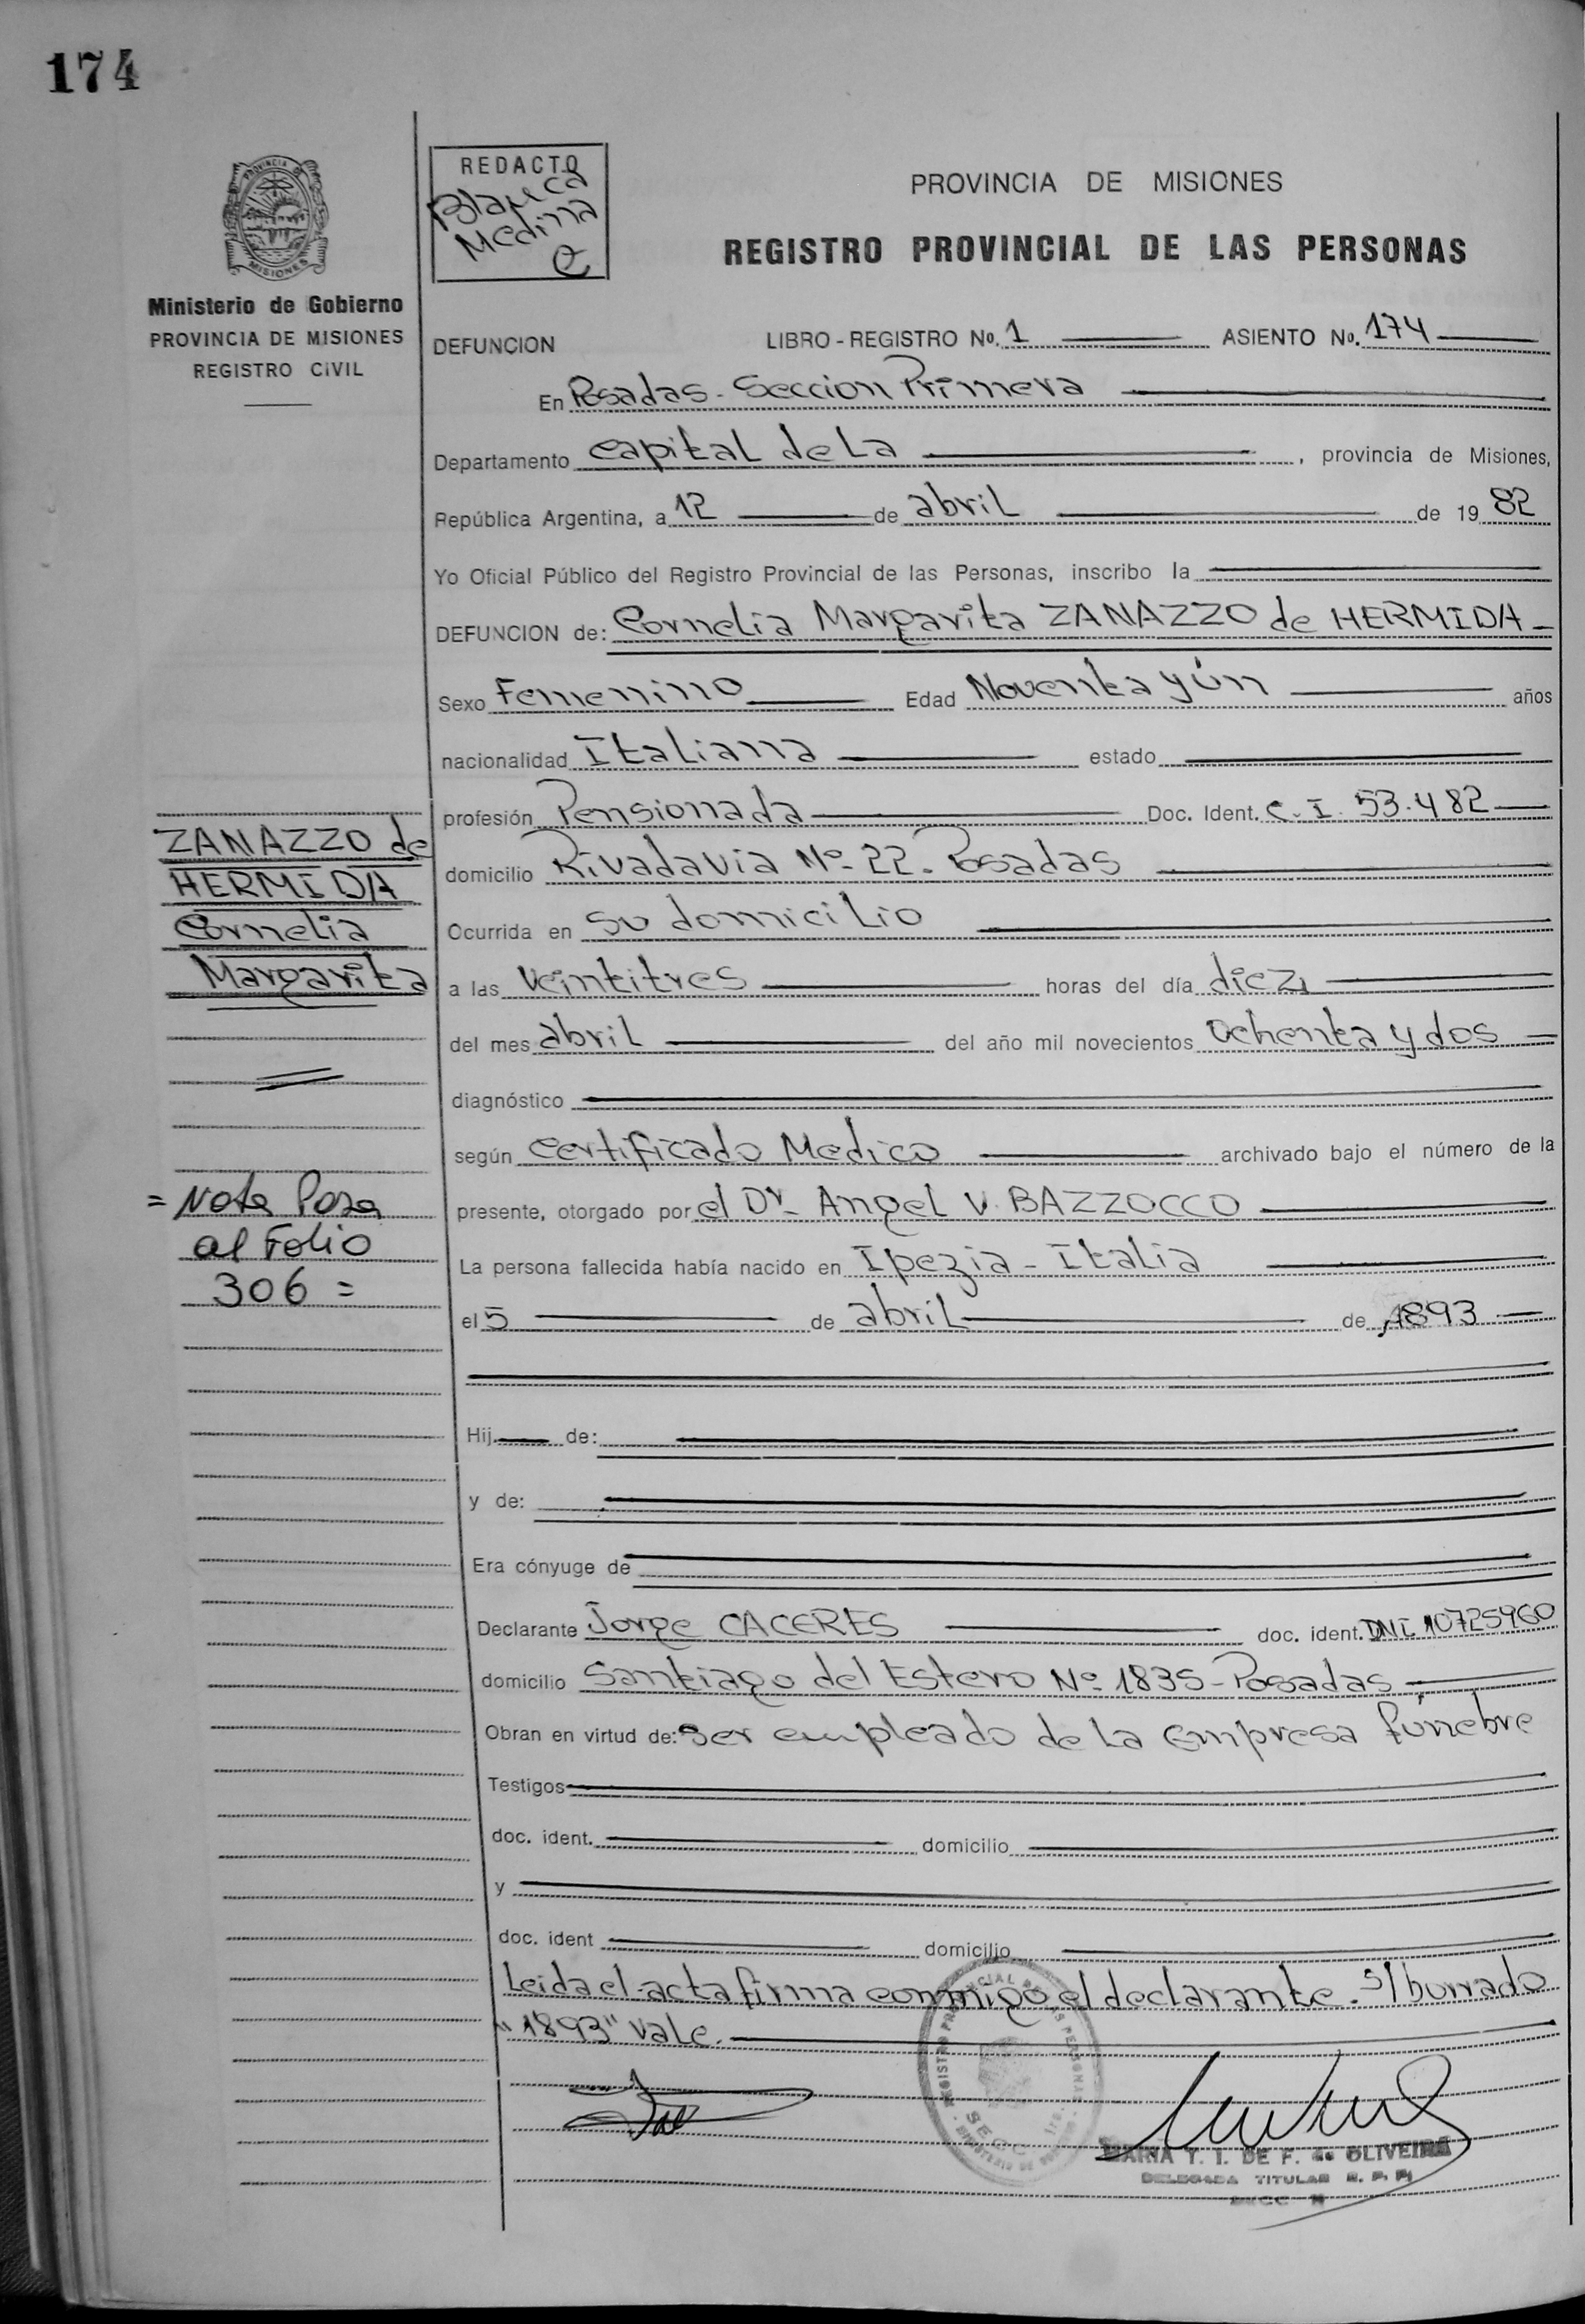 174
PROVINCIA
MISIONES
Ministerio de Gobierno
PROVINCIA DE MISIONES
REGISTRO CIVIL
REDACTO
Blanca
Medina
PROVINCIA DE MISIONES
REGISTRO PROVINCIAL DE LAS PERSONAS
DEFUNCION LIBRO - REGISTRO No. 1 ASIENTO No. 174
En Posadas - Seccion Primera
Departamento Capital de La , provincia de Misiones,
República Argentina, a 12 de abril de 19 82
Yo Oficial Público del Registro Provincial de las Personas, inscribo la
DEFUNCION de: Cornelia Margarita ZANAZZO de HERMIDA -
Sexo Femenino Edad Noventa y ún años
nacionalidad Italiana estado
profesión Pensionada Doc. Ident. C. I. 53.482
domicilio Rivadavia Nº 22 - Posadas
Ocurrida en su domicilio
a las veintitres horas del día diez
del mes abril del año mil novecientos ochenta y dos
diagnóstico
según certificado Medico archivado bajo el número de la
presente, otorgado por el Dr. Angel V. BAZZOCCO
La persona fallecida había nacido en Ipezia - Italia
el 5 de abril de 1893
Hij de:
y de:
Era cónyuge de
Declarante Jorge CACERES doc. ident. DNI 10725960
domicilio Santiago del Estero Nº 1835 - Posadas
Obran en virtud de: ser empleado de la empresa fúnebre
Testigos
doc. ident. domicilio
y
doc. ident domicilio
Leida el acta firma conmigo el declarante. S/ borrado
"1893" vale.
ZANAZZO de
HERMIDA
Cornelia
Margarita
= Nota Pasa
al Folio
306 =
MARIA Y. I. DE F. de OLIVEIRA
DELEGADA TITULAR R. P. P.